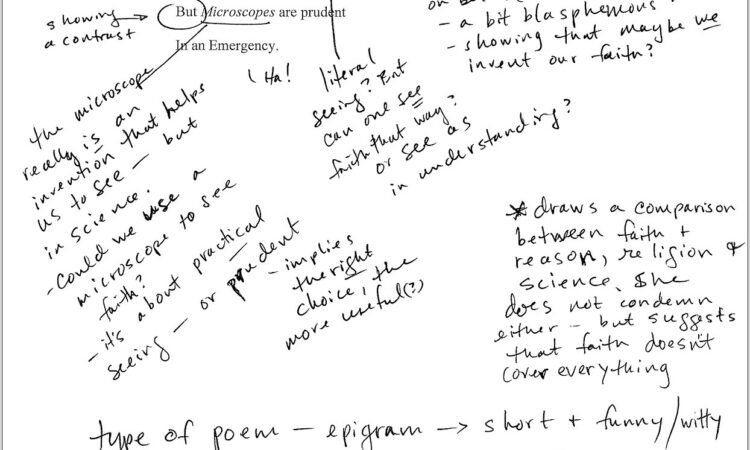 showing
a contrast
But Microscopes are prudent
In an Emergency.
- a bit blasphemous
- showing that maybe we
invent our faith?
(Ha!
literal
seeing? But
can one see
faith that way?
or see as
in understanding?
the microscope
really is an
invention that helps
us to see — but
in science.
- Could we use a
microscope to see
faith?
- it's about practical
seeing — or prudent
- implies
the right
choice, the
more useful(?)
* draws a comparison
between faith +
reason, religion +
science. She
does not condemn
either — but suggests
that faith doesn't
cover everything
type of poem — epigram → short + funny/witty